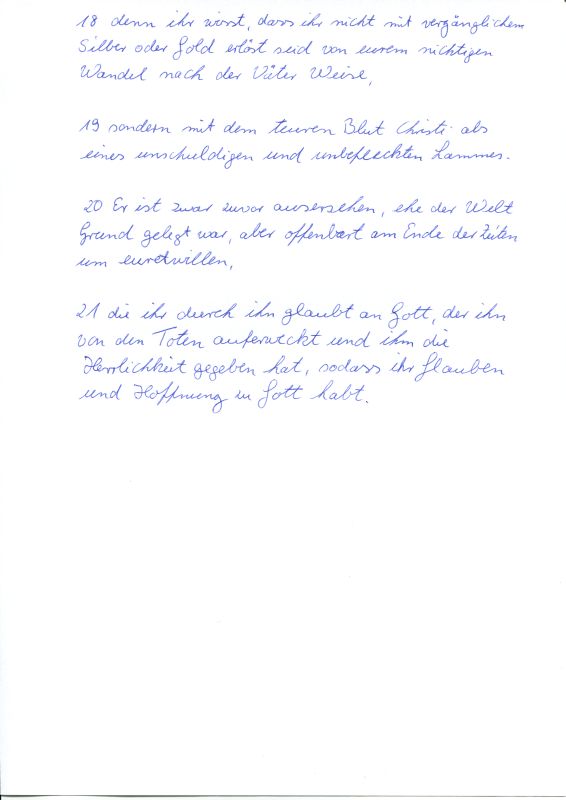 18 denn ihr wisst, dass ihr nicht mit vergänglichem
Silber oder Gold erlöst seid von eurem nichtigen
Wandel nach der Väter Weise,
19 sondern mit dem teuren Blut Christi als
eines unschuldigen und unbefleckten Lammes.
20 Er ist zwar zuvor ausersehen, ehe der Welt
Grund gelegt war, aber offenbart am Ende der Zeiten
um euretwillen,
21 die ihr durch ihn glaubt an Gott, der ihn
von den Toten auferweckt und ihm die
Herrlichkeit gegeben hat, sodass ihr Glauben
und Hoffnung zu Gott habt.